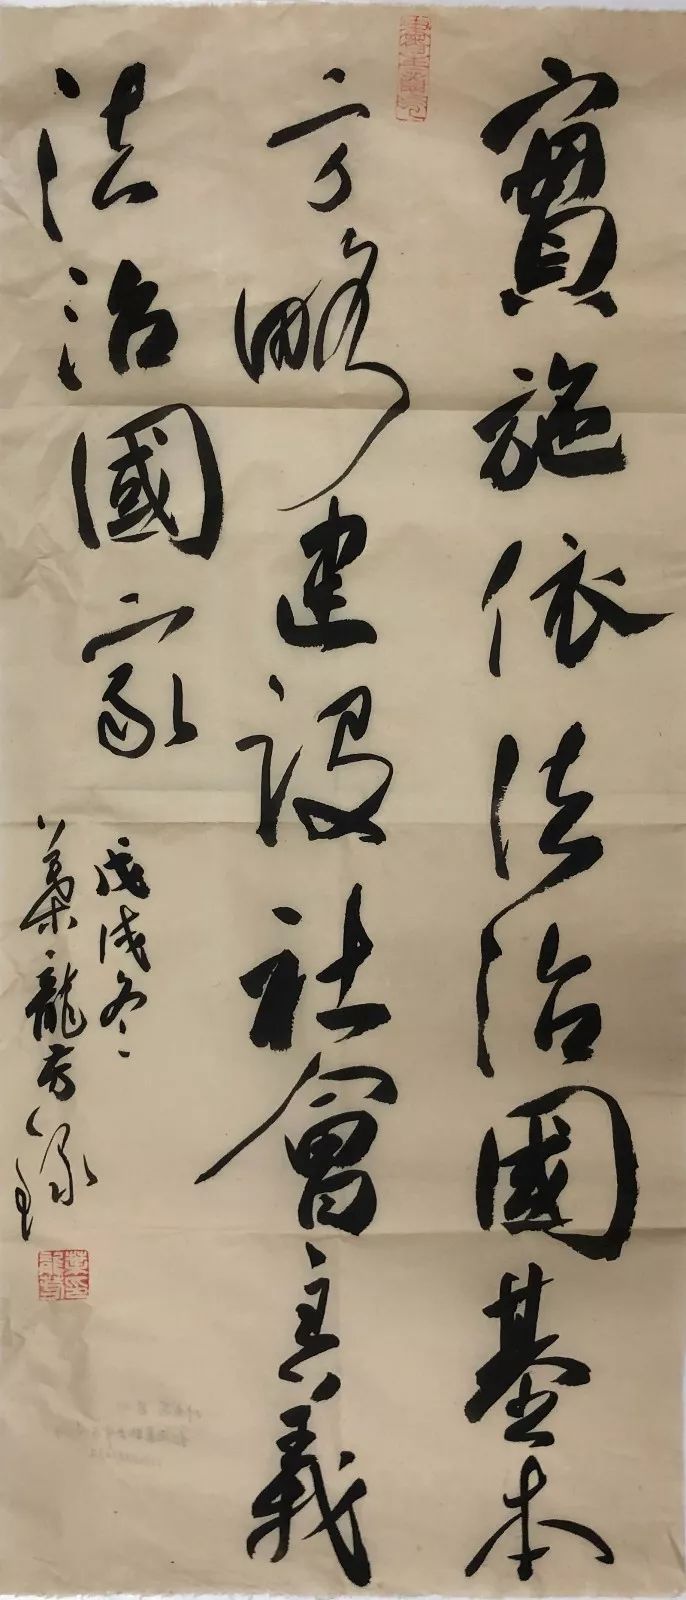 實施依法治國基本
方略建設社會主義
法治國家
戊戌冬
葉龍芳錄